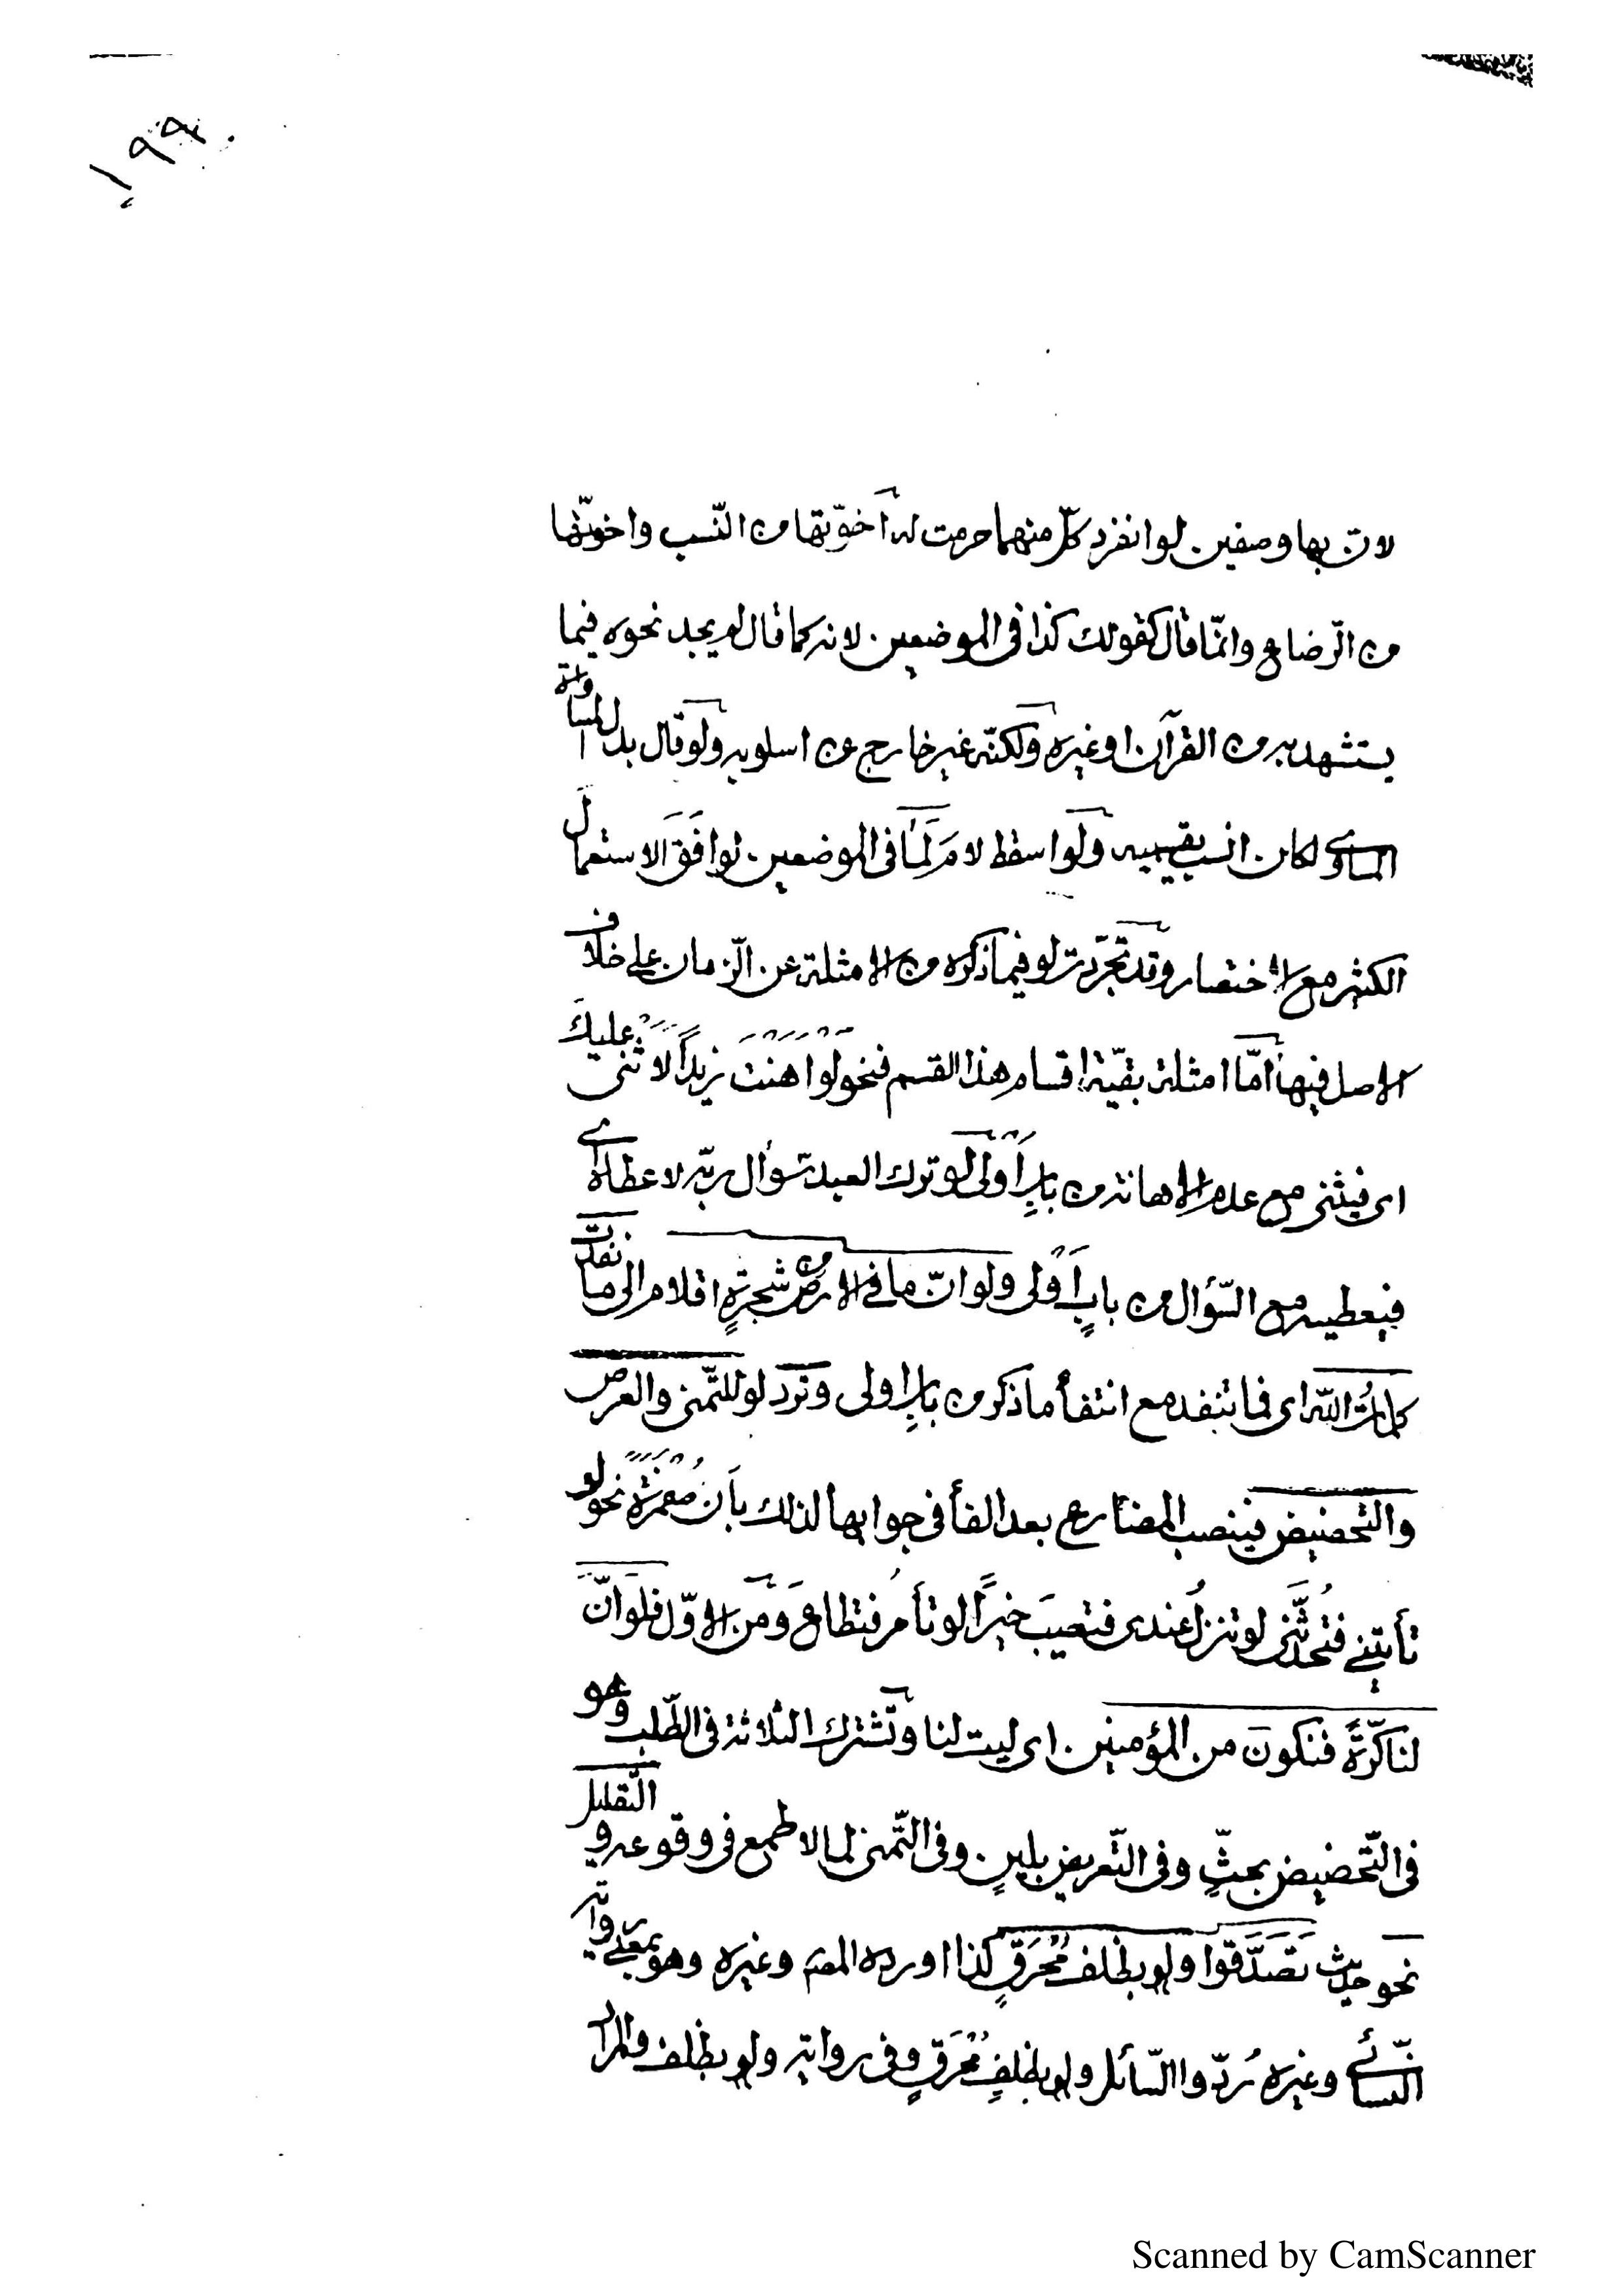 ١٩٩
لان بها وصفين لو انفرد كلّ منهما حرمت له اخوّتها من النّسب واخوّتها
من الرّضاع وانّما قال كقولك كذا في الموضعين لانه كما قال لم يجد نحوه فيما
يستشهد به من القرآن او غيره ولكنّه غير خارج عن اسلوبه ولو قال بدل المساواة
المساوى لكان انسب بقسيميه ولو اسقط لامَ لَمَا في الموضعين لوافَقَ الاستعمالَ
الكثير مع الاختصار وقد تجرّدت لو فيما ذكره من الامثلة عن الزّمان على خلاف
الاصل فيها امّا امثلة بقيّة اقسام هذا القسم فنحو لَوْ اَهَنْتَ زيداً لاَثْنى عليكَ
اى فيثنى مع عدم الاهانة من بابٍ اَولى لو ترك العبد سؤال ربّه لاعطاه اى
فيعطيه مع السّؤال من بابٍ اَولى ولو انّ ما في الارض من شجرةٍ اقلام الى ما نفدت
كلماتُ اللّه اى فما تنفد مع انتفأ ما ذكر من بابٍ اولى وترد لو للتّمنى والعرض
والتّحضيض فينصب المضارع بعد الفأ في جوابها لذلك بأن مُضمَرة نحو لو
تأتينى فتُحدّثَنى لو تنزلُ عندى فتصيبَ خيراً لو تأمُر فتطاعَ ومن الاوّل فلو انّ
لنا كرّةً فنكونَ من المؤمنين اى ليت لنا وتشترك الثلاثة في الطّلب وهو
في التّحضيض بحثٍّ وفي التّعريض بلينٍ وفي التّمنى لما لا طمع في وقوعه والتّقليل
نحو حديث تَصَدَّقوا ولو بظلف مُحرَقٍ كذا اورده المصـ وغيره وهو بمعنى رواية
النّسائى وغيره رُدّوا السّائل ولو بظلفٍ مُحرَقٍ وفي رواية ولو بظلف والمراد
Scanned by CamScanner